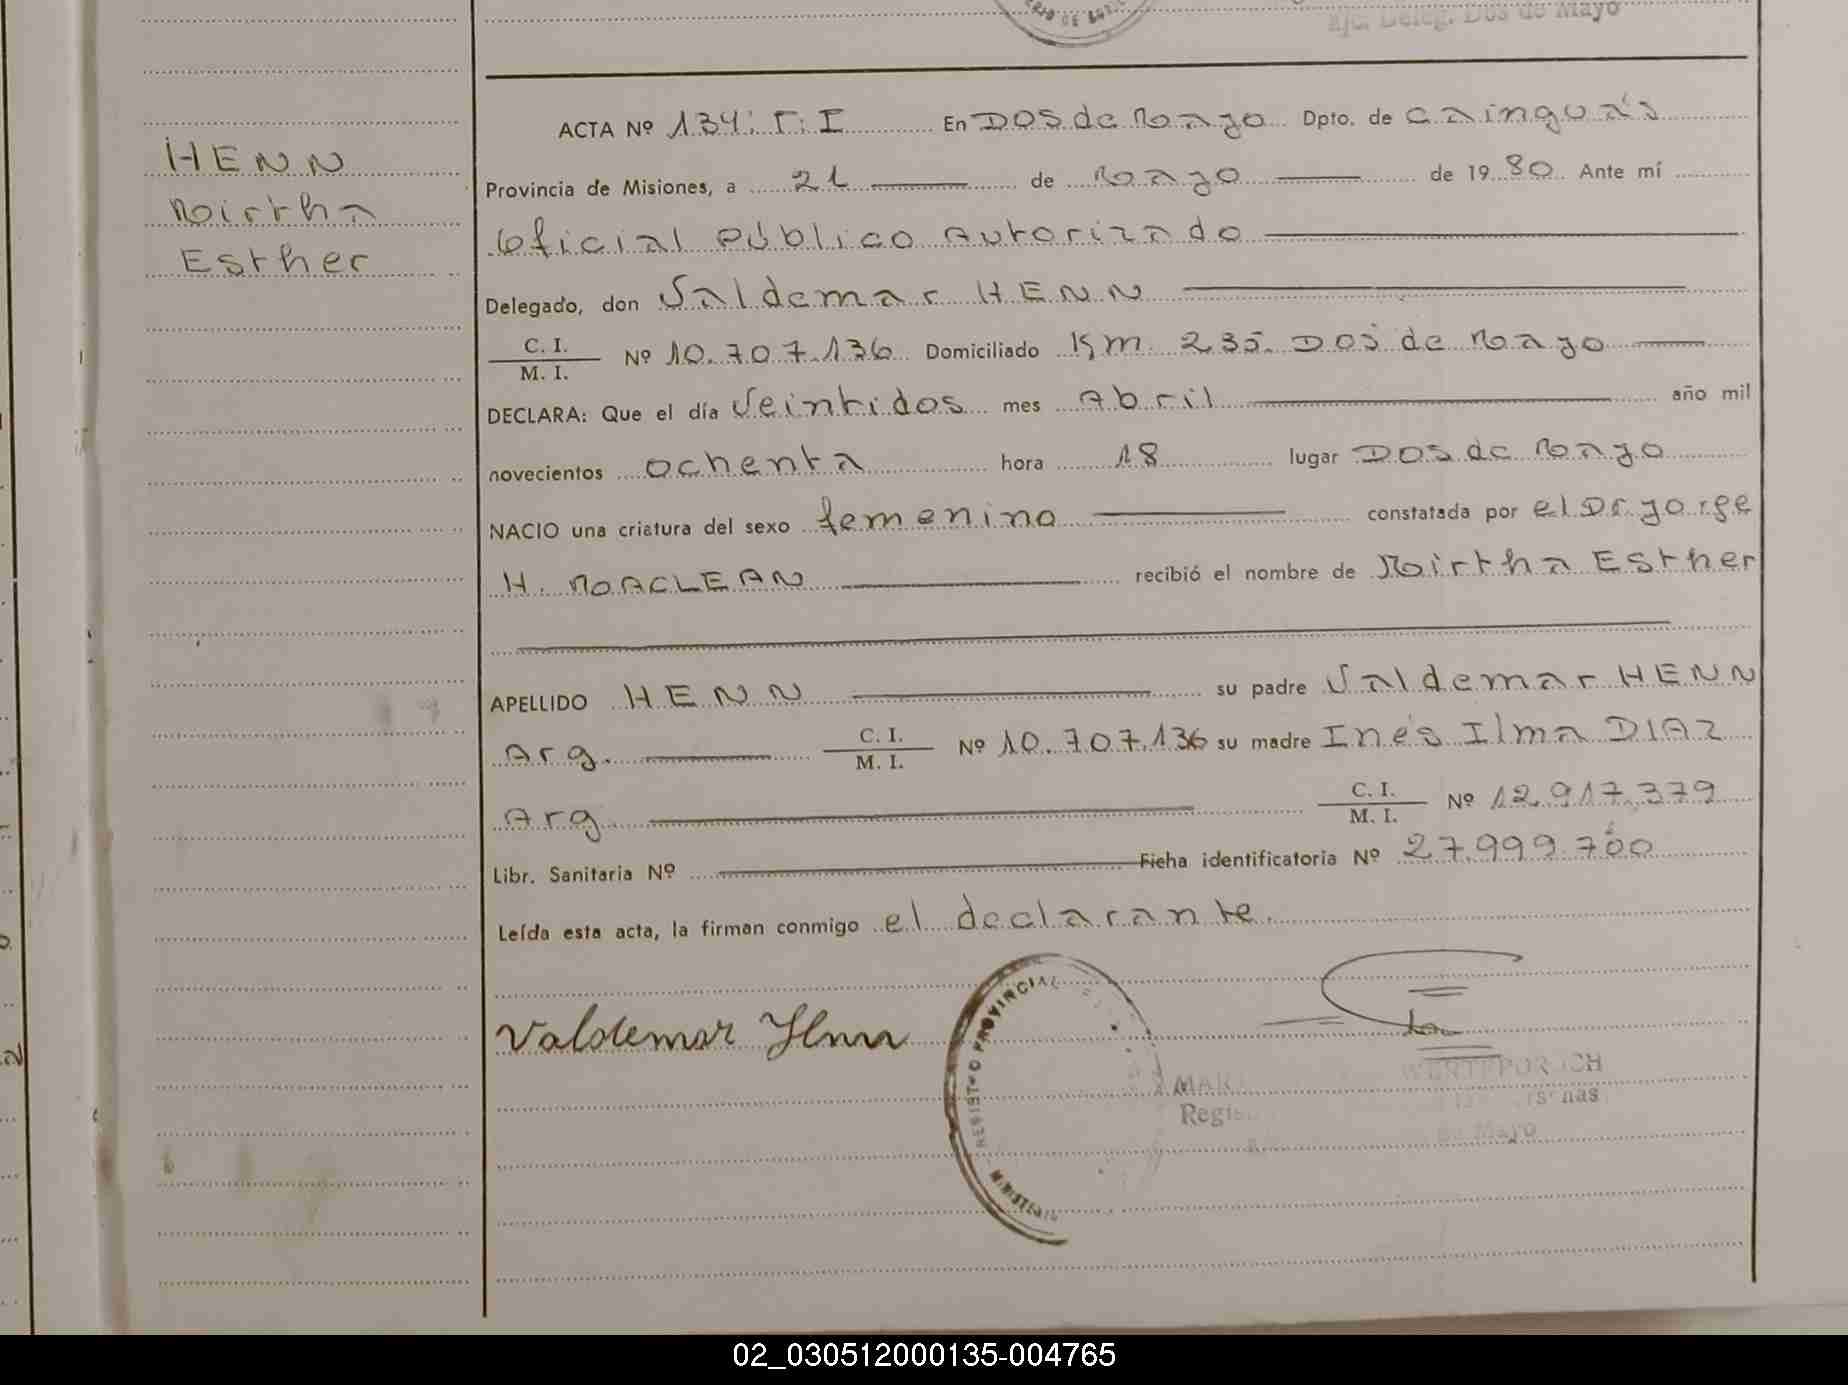 Deleg. Dos de Mayo
HENN
Mirtha
Esther
ACTA Nº 134: T: I En Dos de Mayo Dpto. de cainguás
Provincia de Misiones, a 21 de Mayo de 1980 Ante mí
Oficial Público Autorizado
Delegado, don Valdemar HENN
C. I.
M. I. Nº 10.707.136 Domiciliado Km 235. Dos de Mayo
DECLARA: Que el día Veintidos mes Abril año mil
novecientos ochenta hora 18 lugar Dos de Mayo
NACIO una criatura del sexo femenino constatada por el Dr Jorge
H. MACLEAN recibió el nombre de Mirtha Esther
APELLIDO HENN su padre Valdemar HENN
Arg. C. I.
M. I. Nº 10.707.136 su madre Inés Ilma DIAZ
Arg. C. I.
M. I. Nº 12.917.379
Libr. Sanitaria Nº Ficha identificatoria Nº 27.999.700
Leída esta acta, la firman conmigo el declarante.
Valdemar Henn
REGISTRO PROVINCIAL
MAR
Regis
de Mayo
02_030512000135-004765